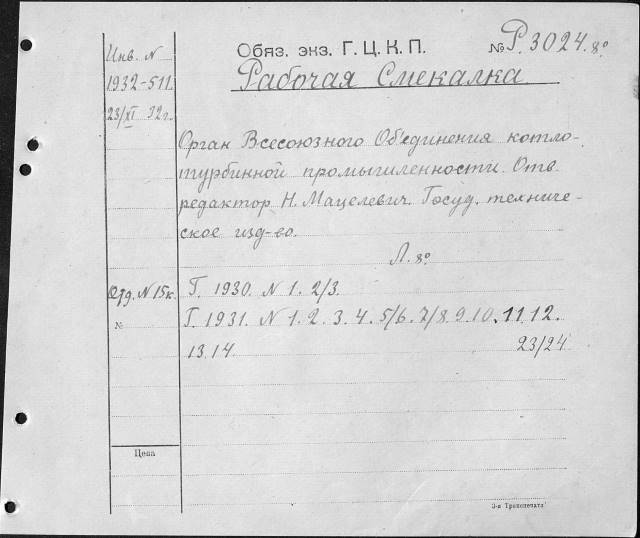 Инв. N
1932-511.
23/XI 32 г.
Обяз. экз. Г. Ц. К. П.
№ Р. 3024. 8°
Рабочая Смекалка
Орган Всесоюзного Об'единения котло-
турбинной промышленности. Отв.
редактор Н. Мацелевич. Госуд. техниче-
ское изд-во.
Л. 8°
Отд. N 15к.
№
Г. 1930. N 1. 2/3.
Г. 1931. N 1. 2. 3. 4. 5/6. 7/8. 9. 10. 11. 12.
13. 14. 23/24
Цена
3-я Транспечать